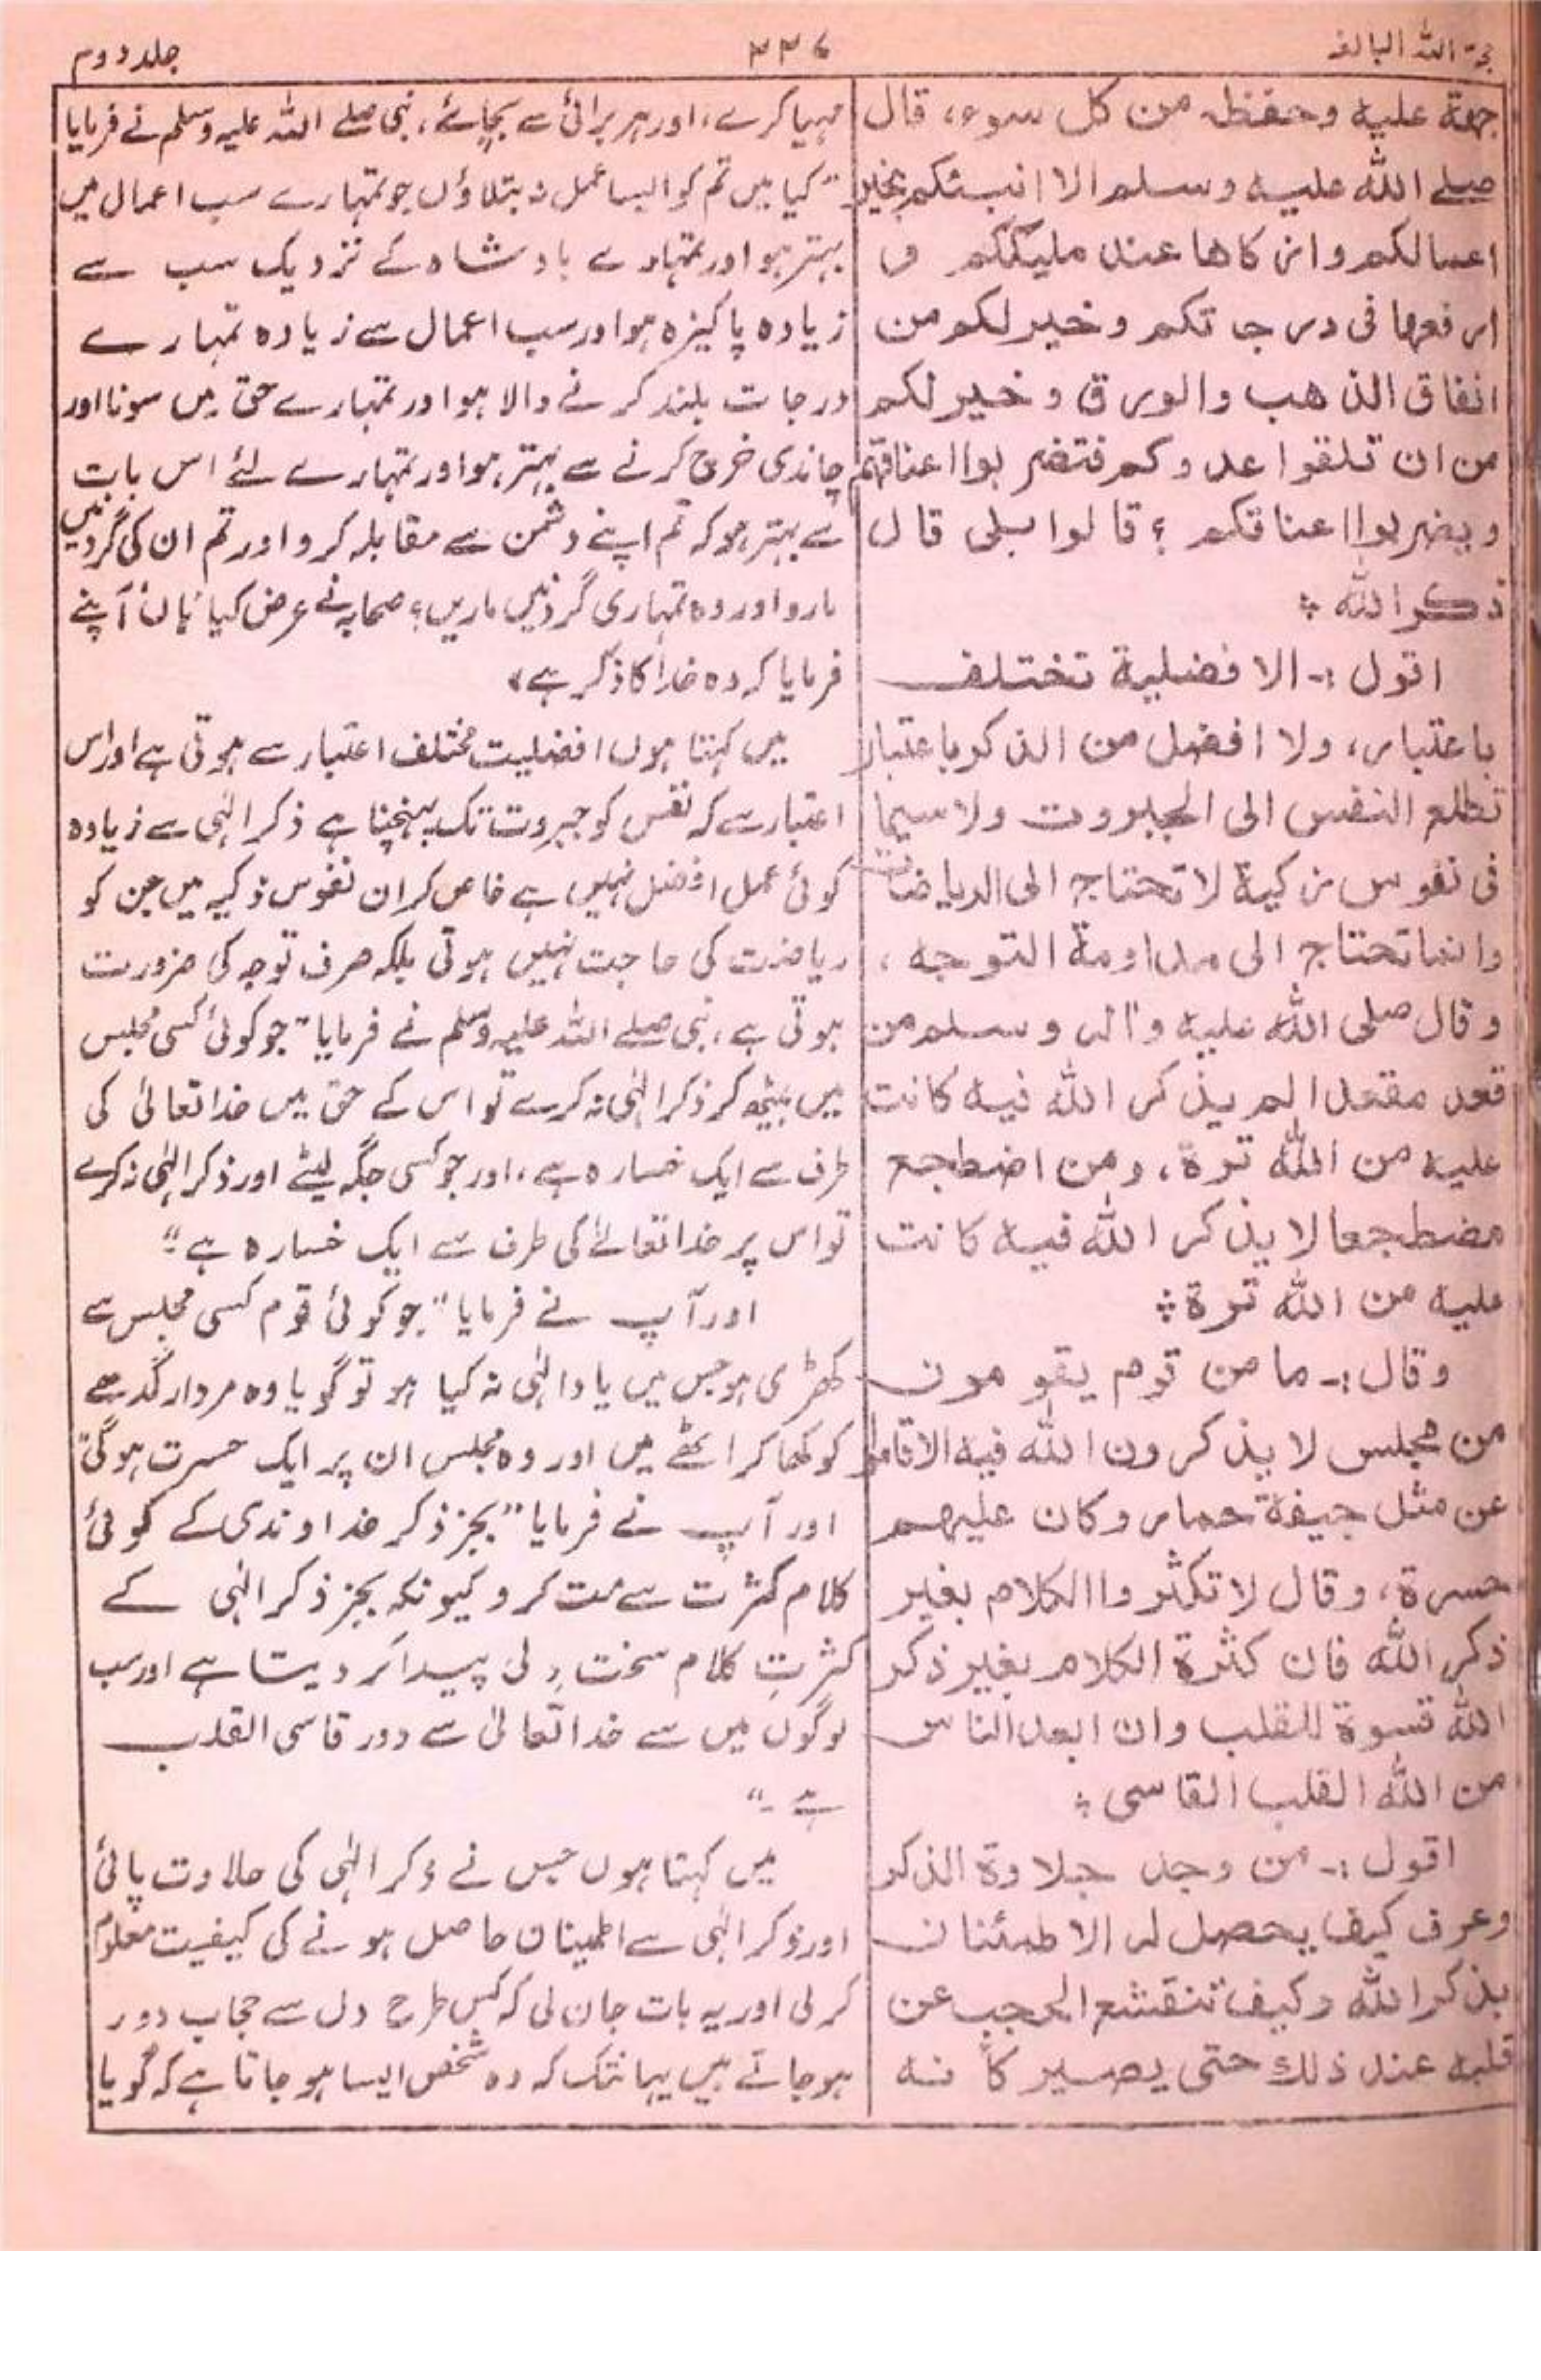 حجۃ اللہ البالغہ
۲۲۶
جلد دوم
جمة عليه وحفظه من كل سوء، قال
صلے الله عليه وسلم الا انبئكم بخير
اعمالكم وازكاها عند مليككم و
ارفعها فى درجاتكم وخير لكم من
انفاق الذهب والورق وخير لكم
من ان تلقوا عدوكم فتضربوا اعناقهم
ويضربوا اعناقكم ؟ قالوا بلى قال
ذكر الله ؞
اقول :- الافضلية تختلف
باعتبار، ولا افضل من الذكر باعتبار
تطلع النفس الى الجبروت ولا سيما
فى نفوس زكية لا تحتاج الى الرياضات
وانما تحتاج الى مداومة التوجه ،
وقال صلى الله عليه واٰله وسلم من
قعد مقعدا لم يذكر الله فيه كانت
عليه من الله ترة، ومن اضطجع
مضطجعا لا يذكر الله فيه كانت
عليه من الله ترة ؞
وقال :- ما من قوم يقومون
من مجلس لا يذكرون الله فيه الا قاموا
عن مثل جيفة حمار وكان عليهم
حسرة، وقال لا تكثروا الكلام بغير
ذكر الله فان كثرة الكلام بغير ذكر
الله قسوة للقلب وان ابعد الناس
من الله القلب القاسى ؞
اقول :- من وجد حلاوة الذكر
وعرف كيف يحصل له الاطمئنان
بذكر الله وكيف تنقشع الحجب عن
قلبه عند ذلك حتى يصير كأنه
مہیا کرے، اور ہر برائی سے بچائے، نبی صلے اللہ علیہ وسلم نے فرمایا
“کیا میں تم کو ایسا عمل نہ بتلاؤں جو تمہارے سب اعمال میں
بہتر ہو اور تمہارے بادشاہ کے نزدیک سب سے
زیادہ پاکیزہ ہو اور سب اعمال سے زیادہ تمہارے
درجات بلند کرنے والا ہو اور تمہارے حق میں سونا اور
چاندی خرچ کرنے سے بہتر ہو اور تمہارے لئے اس بات
سے بہتر ہو کہ تم اپنے دشمن سے مقابلہ کرو اور تم ان کی گردنیں
مارو اور وہ تمہاری گردنیں ماریں؟ صحابہ نے عرض کیا ہاں آپنے
فرمایا کہ وہ خدا کا ذکر ہے،
میں کہتا ہوں افضلیت مختلف اعتبار سے ہوتی ہے اور اس
اعتبار سے کہ نفس کو جبروت تک پہنچتا ہے ذکر الٰہی سے زیادہ
کوئی عمل افضل نہیں ہے خاص کر ان نفوس ذکیہ میں جن کو
ریاضت کی حاجت نہیں ہوتی بلکہ صرف توجہ کی ضرورت
ہوتی ہے، نبی صلے اللہ علیہ وسلم نے فرمایا “جو کوئی کسی مجلس
میں بیٹھ کر ذکر الٰہی نہ کرے تو اس کے حق میں خدا تعالیٰ کی
طرف سے ایک خسارہ ہے، اور جو کسی جگہ لیٹے اور ذکر الٰہی نہ کرے
تو اس پر خدا تعالےٰ کی طرف سے ایک خسارہ ہے”
اور آپ نے فرمایا “جو کوئی قوم کسی مجلس سے
کھڑی ہو جس میں یاد الٰہی نہ کیا ہو تو گویا وہ مردار گدھے
کو کھا کر اٹھے ہیں اور وہ مجلس ان پر ایک حسرت ہوگی”
اور آپ نے فرمایا “بجز ذکر خداوندی کے کوئی
کلام کثرت سے مت کرو کیونکہ بجز ذکر الٰہی کے
کثرتِ کلام سخت دلی پیدا کر دیتا ہے اور سب
لوگوں میں سے خدا تعالیٰ سے دور قاسی القلب
ہے۔”
میں کہتا ہوں جس نے ذکر الٰہی کی حلاوت پائی
اور ذکر الٰہی سے اطمینان حاصل ہونے کی کیفیت معلوم
کر لی اور یہ بات جان لی کہ کس طرح دل سے حجاب دور
ہو جاتے ہیں یہانتک کہ وہ شخص ایسا ہو جاتا ہے کہ گویا